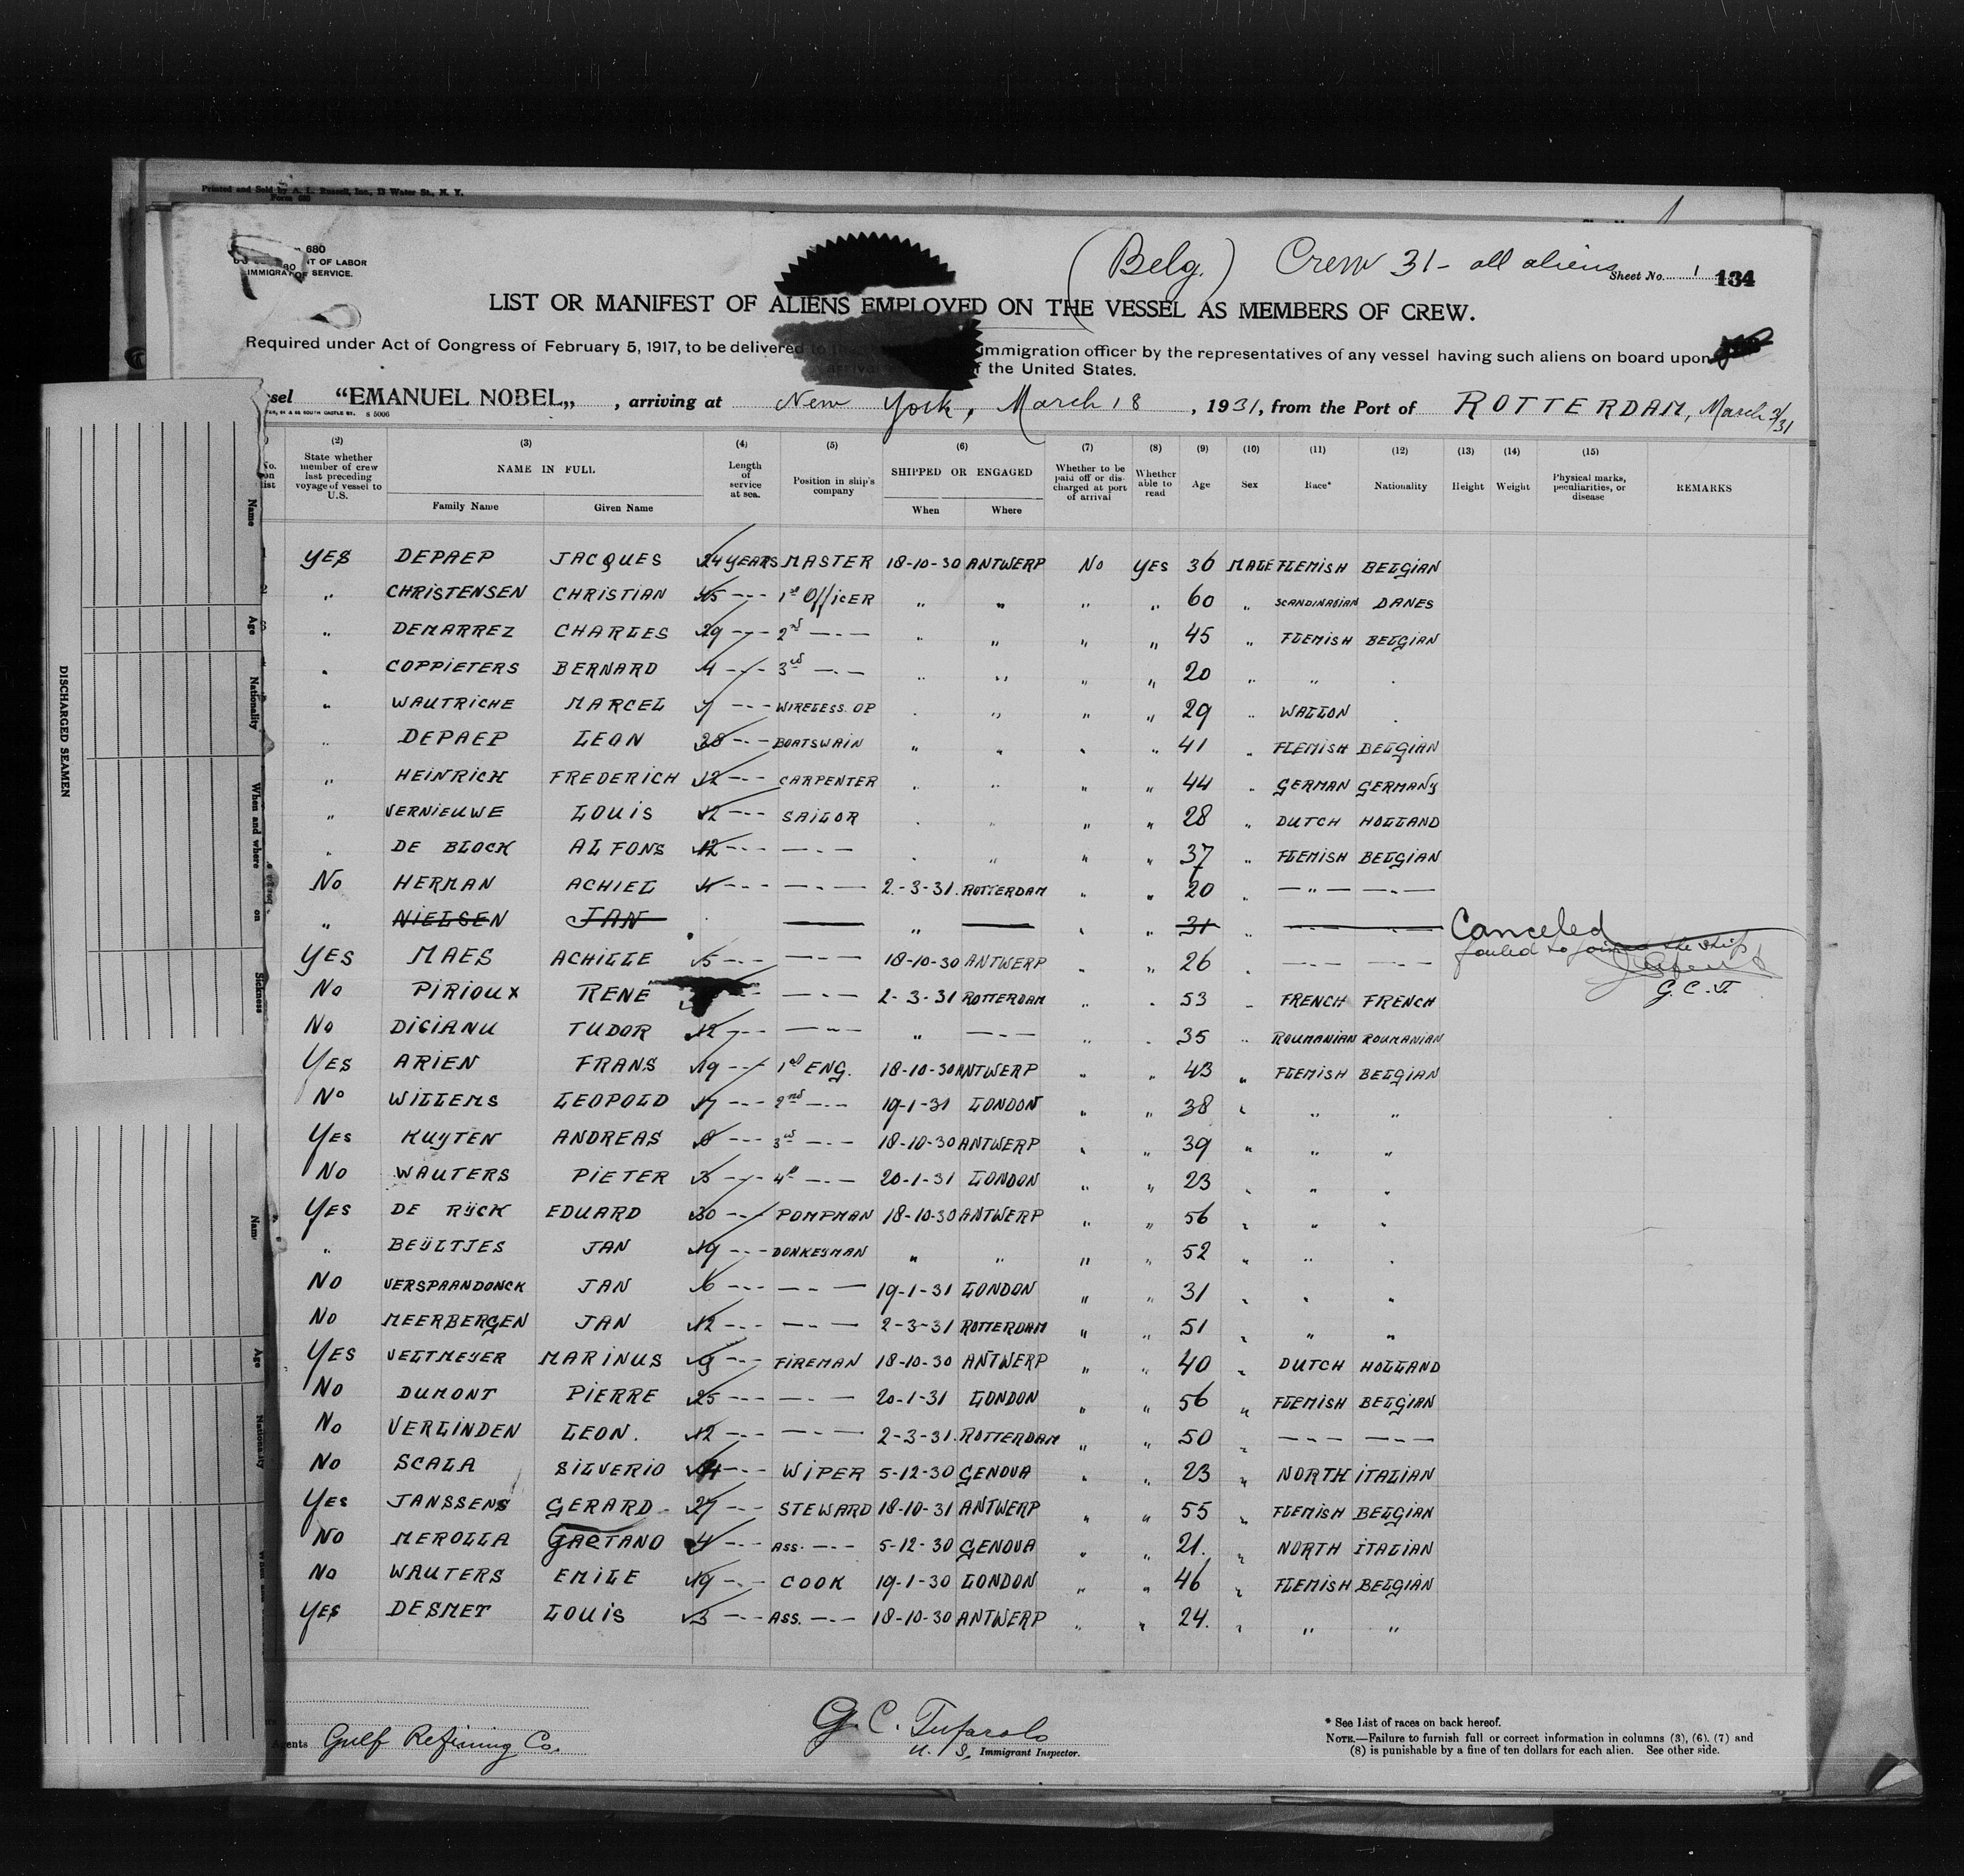 Printed and Sold by A. L. Russell, Inc., 13 Water St., N. Y.
Form 680
680
T OF LABOR
IMMIGRA SERVICE.
(Belg.) Crew 31 - all aliens
Sheet No. 1 134
LIST OR MANIFEST OF ALIENS EMPLOYED ON THE VESSEL AS MEMBERS OF CREW.
Required under Act of Congress of February 5, 1917, to be delivered to the immigration officer by the representatives of any vessel having such aliens on board upon
arrival of the United States.
ssel "EMANUEL NOBEL„ , arriving at New York, March 18 , 1931, from the Port of ROTTERDAM, March 2/31
(2) (3) (4) (5) (6) (7) (8) (9) (10) (11) (12) (13) (14) (15)
No. on list State whether member of crew last preceding voyage of vessel to U.S. NAME IN FULL Family Name Given Name Length of service at sea. Position in ship's company SHIPPED OR ENGAGED When Where Whether to be paid off or discharged at port of arrival Whether able to read Age Sex Race* Nationality Height Weight Physical marks, peculiarities, or disease REMARKS
YES DEPAEP JACQUES 24 YEARS MASTER 18-10-30 ANTWERP No YES 36 MALE FLEMISH BELGIAN
" CHRISTENSEN CHRISTIAN 45 --- 1st OFFICER " " " " 60 " SCANDINASIAN DANES
" DEMARREZ CHARLES 29 --- 2nd -.- " " " " 45 " FLEMISH BELGIAN
" COPPIETERS BERNARD 4 --- 3rd -.- " " " " 20 " " "
" WAUTRICHE MARCEL 7 --- WIRELESS. OP " " " " 29 " WALLON "
" DEPAEP LEON 28 --- BOATSWAIN " " " " 41 " FLEMISH BELGIAN
" HEINRICH FREDERICH 12 --- CARPENTER " " " " 44 " GERMAN GERMANY
" VERNIEUWE LOUIS 12 --- SAILOR " " " " 28 " DUTCH HOLLAND
" DE BLOCK ALFONS 12 --- -.- " " " " 37 " FLEMISH BELGIAN
No HERMAN ACHIEL 4 --- -.- 2-3-31. ROTTERDAM " " 20 " -"- -.-
" NIELSEN JAN — " — " " 31 " — — Canceled
failed to join the ship
YES MAES ACHILLE 5 --- -.- 18-10-30 ANTWERP " " 26 " -.- -.-
G.C.T.
No PIRIOUX RENE --- -.- 2-3-31 ROTTERDAM " " 53 " FRENCH FRENCH
No DICIANU TUDOR 12 --- -.- " -.- " " 35 " ROUMANIAN ROUMANIAN
YES ARIEN FRANS 19 --- 1st ENG. 18-10-30 ANTWERP " " 43 " FLEMISH BELGIAN
No WILLEMS LEOPOLD 17 --- 2nd -.- 19-1-31 LONDON " " 38 " " "
YES KUYTEN ANDREAS 8 --- 3rd -.- 18-10-30 ANTWERP " " 39 " " "
No WAUTERS PIETER 3 --- 4th -.- 20-1-31 LONDON " " 23 " " "
YES DE RIJCK EDUARD 30 --- POMPMAN 18-10-30 ANTWERP " " 56 " " "
" BEIJLTJES JAN 19 --- DONKEYMAN " " " " 52 " " "
No VERSPAANDONCK JAN 6 --- -.- 19-1-31 LONDON " " 31 " " "
No MEERBERGEN JAN 12 --- -.- 2-3-31 ROTTERDAM " " 51 " " "
YES VELTMEYER MARINUS 9 --- FIREMAN 18-10-30 ANTWERP " " 40 " DUTCH HOLLAND
No DUMONT PIERRE 25 --- -.- 20-1-31 LONDON " " 56 " FLEMISH BELGIAN
No VERLINDEN LEON. 12 --- -.- 2-3-31. ROTTERDAM " " 50 " -.- -.-
No SCALA SILVERIO --- WIPER 5-12-30 GENOVA " " 23 " NORTH ITALIAN
YES JANSSENS GERARD 27 --- STEWARD 18-10-31 ANTWERP " " 55 " FLEMISH BELGIAN
No MEROLLA GAETANO 4 --- ASS. -.- 5-12-30 GENOVA " " 21. " NORTH ITALIAN
No WAUTERS EMILE 19 --- COOK 19-1-30 LONDON " " 46 " FLEMISH BELGIAN
YES DESMET LOUIS 3 --- ASS. -.- 18-10-30 ANTWERP " " 24. " " "
Agents Gulf Refining Co.
G. C. Tufarolo
U. S. Immigrant Inspector.
* See List of races on back hereof.
NOTE.—Failure to furnish full or correct information in columns (3), (6), (7) and
(8) is punishable by a fine of ten dollars for each alien. See other side.
DISCHARGED SEAMEN
Name
Age
Nationality
When and where
Sickness
Name
Age
Nationality